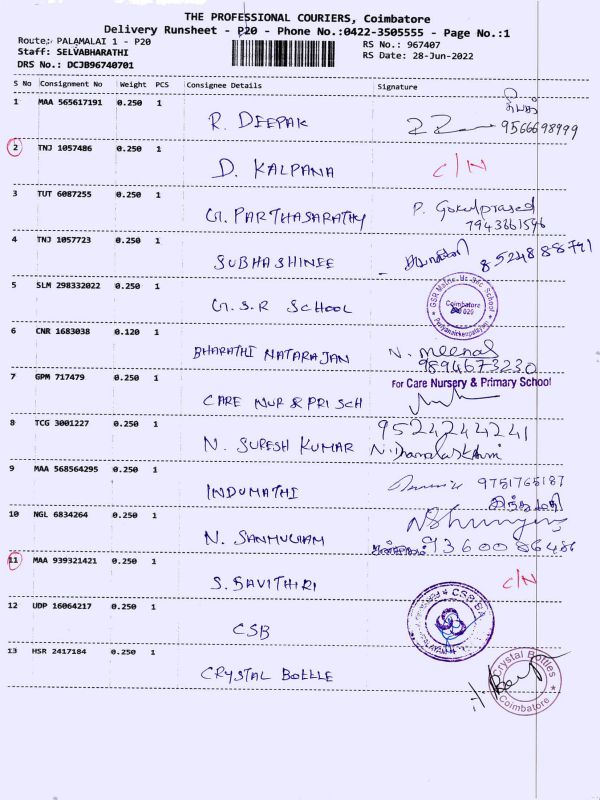 THE PROFESSIONAL COURIERS, Coimbatore
Delivery Runsheet - P20 - Phone No.:0422-3505555 - Page No.:1
Route: PALAMALAI 1 - P20
RS No.: 967407
Staff: SELVABHARATHI
RS Date: 28-Jun-2022
DRS No.: DCJB96740701
S No Consignment No Weight PCS Consignee Details Signature
1 MAA 565617191 0.250 1 R. DEEPAK 9566698999
2 TNJ 1057486 0.250 1 D. KALPANA C/N
3 TUT 6087255 0.250 1 G. PARTHASARATHY P. Gokulprasad
7943661596
4 TNJ 1057723 0.250 1 SUBHASHINEE 8524888791
5 SLM 298332022 0.250 1 G.S.R SCHOOL GSR Matric. Hr. Sec. School Coimbatore
6 CNR 1683038 0.120 1 BHARATHI NATARAJAN N. meenal
9894673230
7 GPM 717479 0.250 1 CARE NUR & PRI SCH For Care Nursery & Primary School
8 TCG 3001227 0.250 1 N. SURESH KUMAR 9524244241
N. Dhanalakshmi
9 MAA 568564295 0.250 1 INDUMATHI 9751765187
இந்துமதி
10 NGL 6834264 0.250 1 N. SANMUGAM
9360086486
11 MAA 939321421 0.250 1 S. SAVITHIRI C/N
12 UDP 16064217 0.250 1 CSB
13 HSR 2417184 0.250 1 CRYSTAL BOTTLE Crystal Bottles
Coimbatore